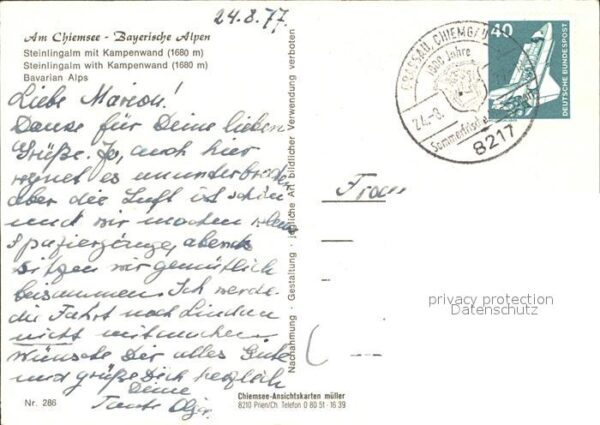 24.8.77
Am Chiemsee - Bayerische Alpen
Steinlingalm mit Kampenwand (1680 m)
Steinlingalm with Kampenwand (1680 m)
Bavarian Alps
Liebe Marion!
Danke für Deine lieben
Grüße. Ja, auch hier
regnet es ununterbrochen
aber die Luft ist schön
und wir machen
Spaziergänge, abends
sitzen wir gemütlich
beisammen. Ich werde
die Fahrt nach Linden
nicht mitmachen.
Wünsche Dir alles Gute
und grüße Dich herzlich
Deine
Tante Olga.
Nr. 286
Nachahmung · Gestaltung · jegliche Art bildlicher Verwendung verboten
Chiemsee-Ansichtskarten müller
8210 Prien/Ch. Telefon 0 80 51 · 16 39
GRASSAU, CHIEMGAU
24.-8.
Sommerfrische
8217
40
DEUTSCHE BUNDESPOST
privacy protection
Datenschutz